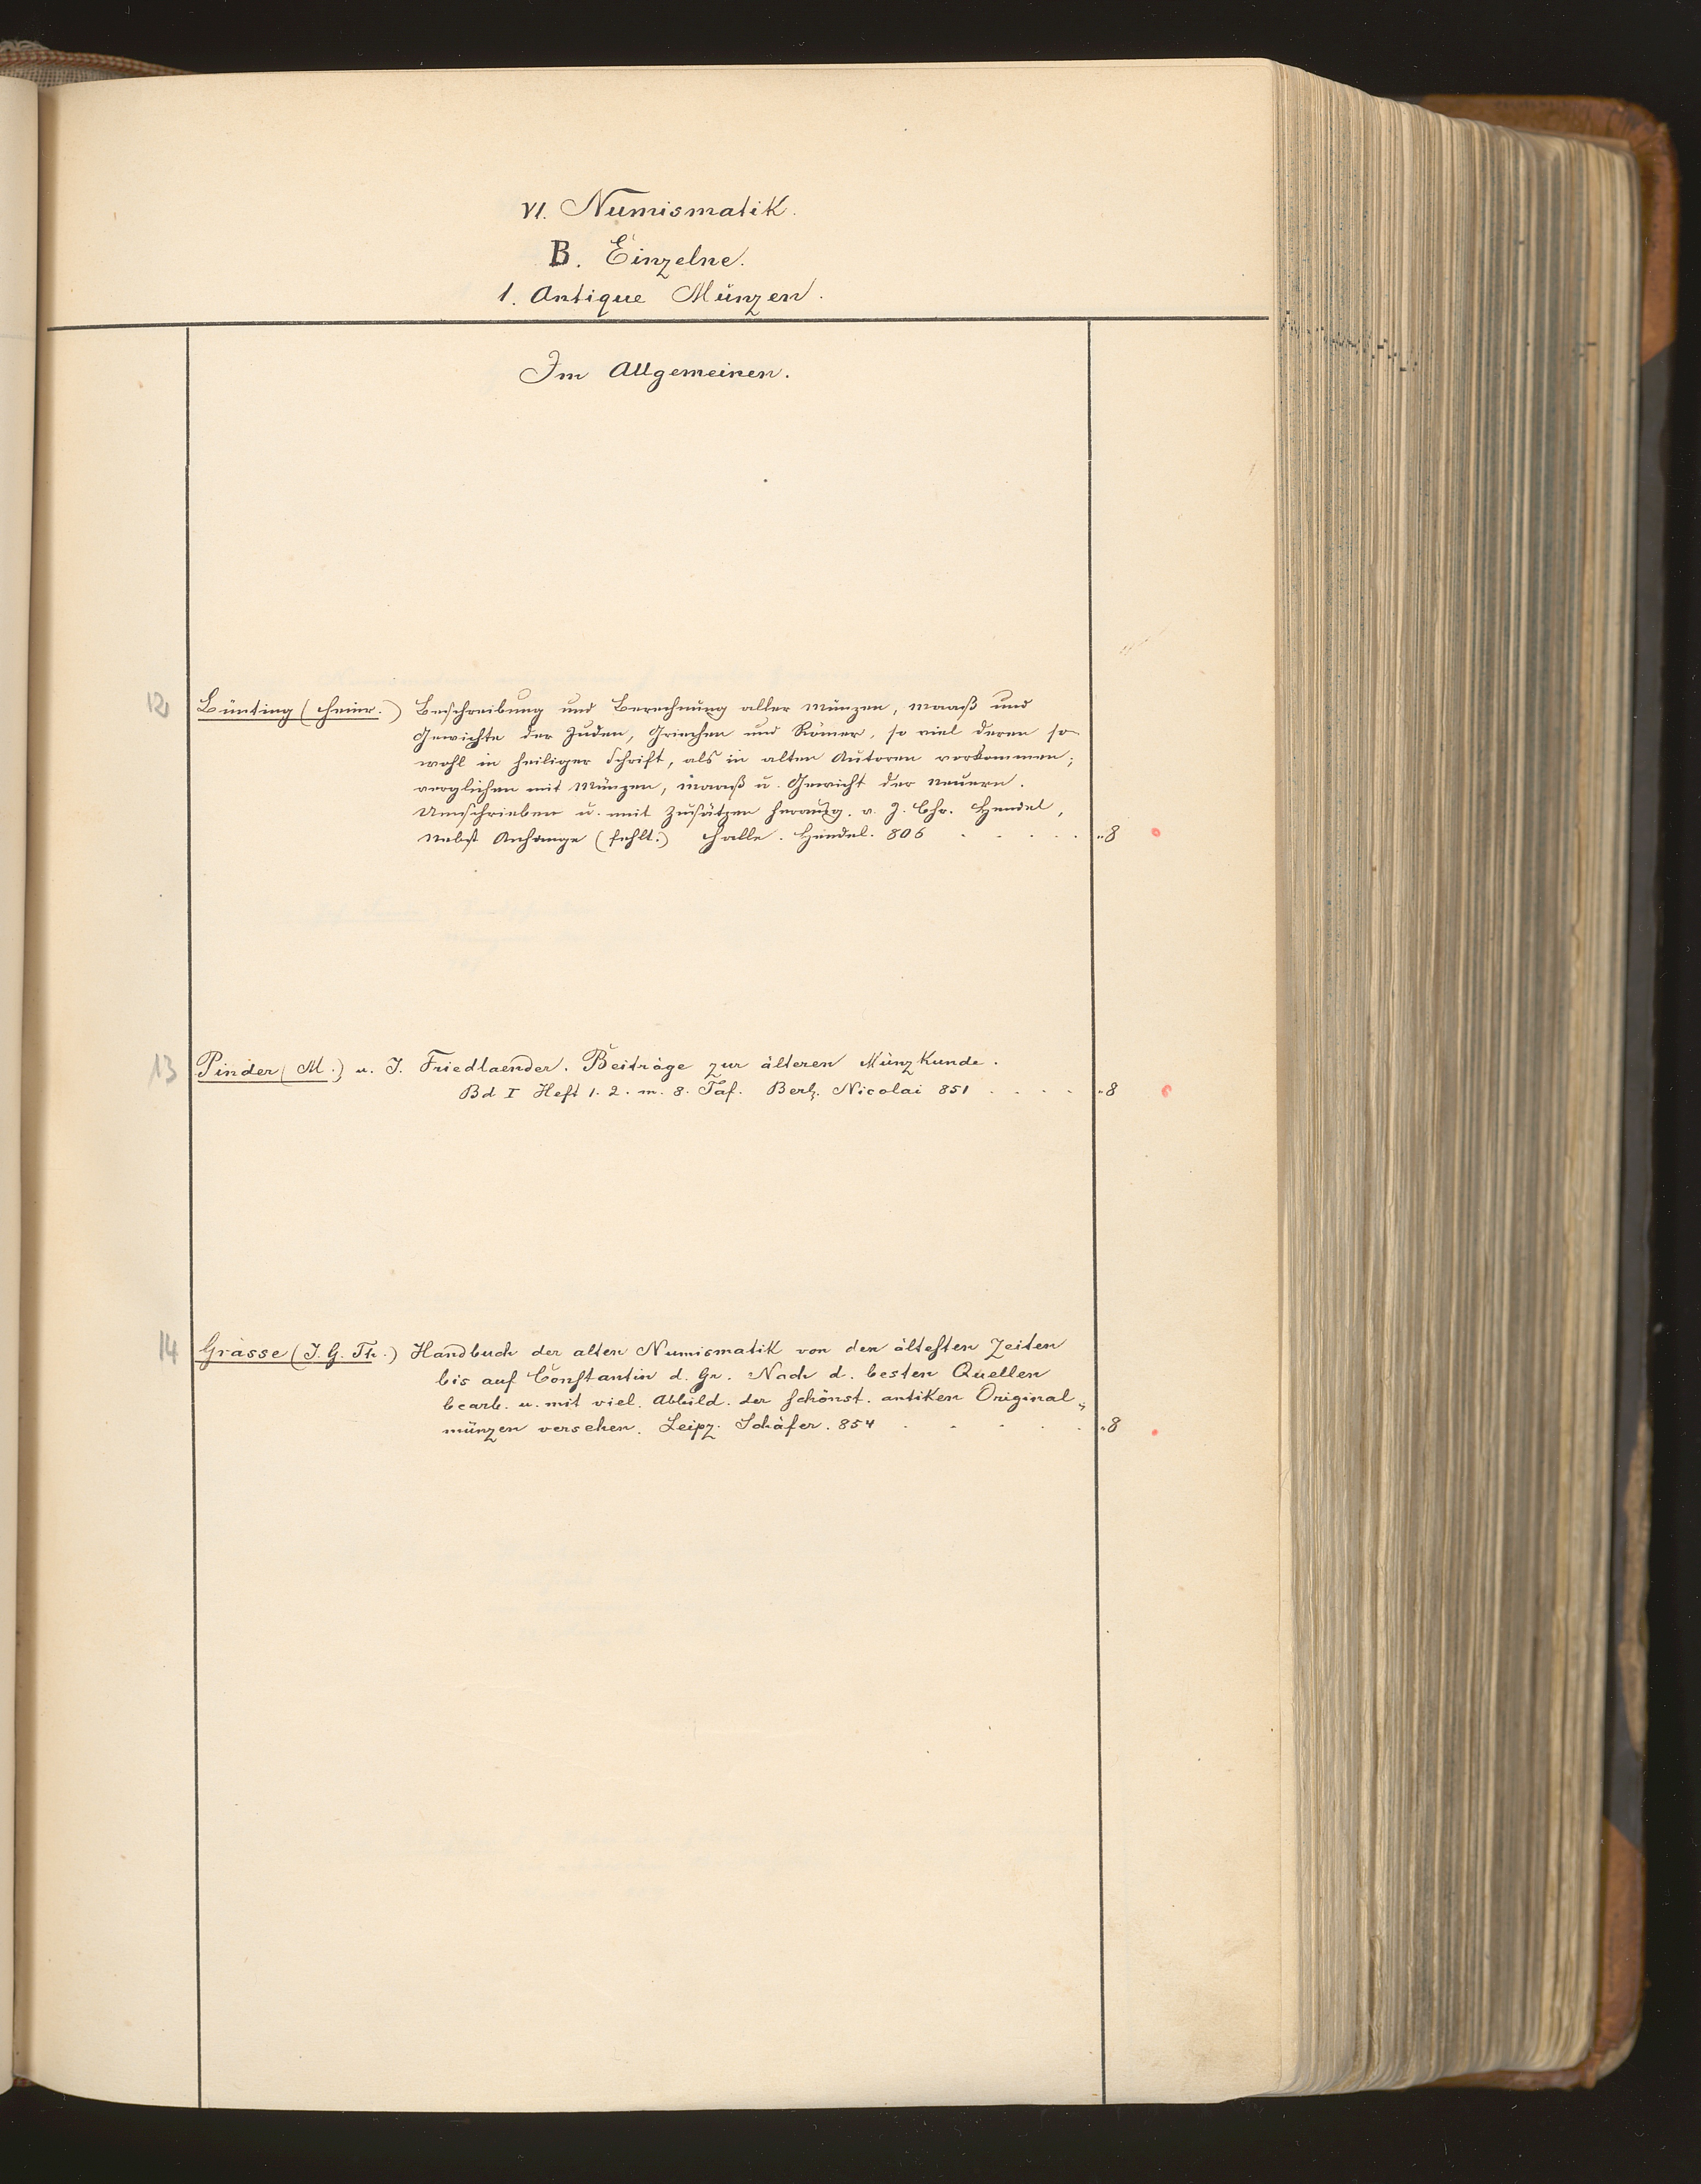 VI. Numismatik.
B. Einzelne.
1. Antique Münzen.
Im Allgemeinen.
12 Bünting (Heinr.) Beschreibung und Berechnung aller Münzen, Maaß und
Gewichte der Juden, Griechen und Römer, so viel deren so-
wohl in heiliger Schrift, als in alten Autoren vorkommen;
verglichen mit Münzen, Maaß u. Gewicht der Neuern.
Umschrieben u. mit Zusätzen herausg. v. J. Chr. Hendel,
Nebst Anhange (fehlt.) Halle. Hendel. 806 . . . . . „8
13 Pinder (M.) u. J. Friedlaender. Beiträge zur älteren Münzkunde.
Bd I Heft 1. 2. m. 8. Taf. Berl. Nicolai 851 . . . . „8
14 Grässe (J. G. Th.) Handbuch der alten Numismatik von den ältesten Zeiten
bis auf Constantin d. Gr. Nach d. besten Quellen
bearb. u. mit viel. Abbild. der schönst. antiken Original„
münzen versehen. Leipz. Schäfer. 854 . . . . . „8